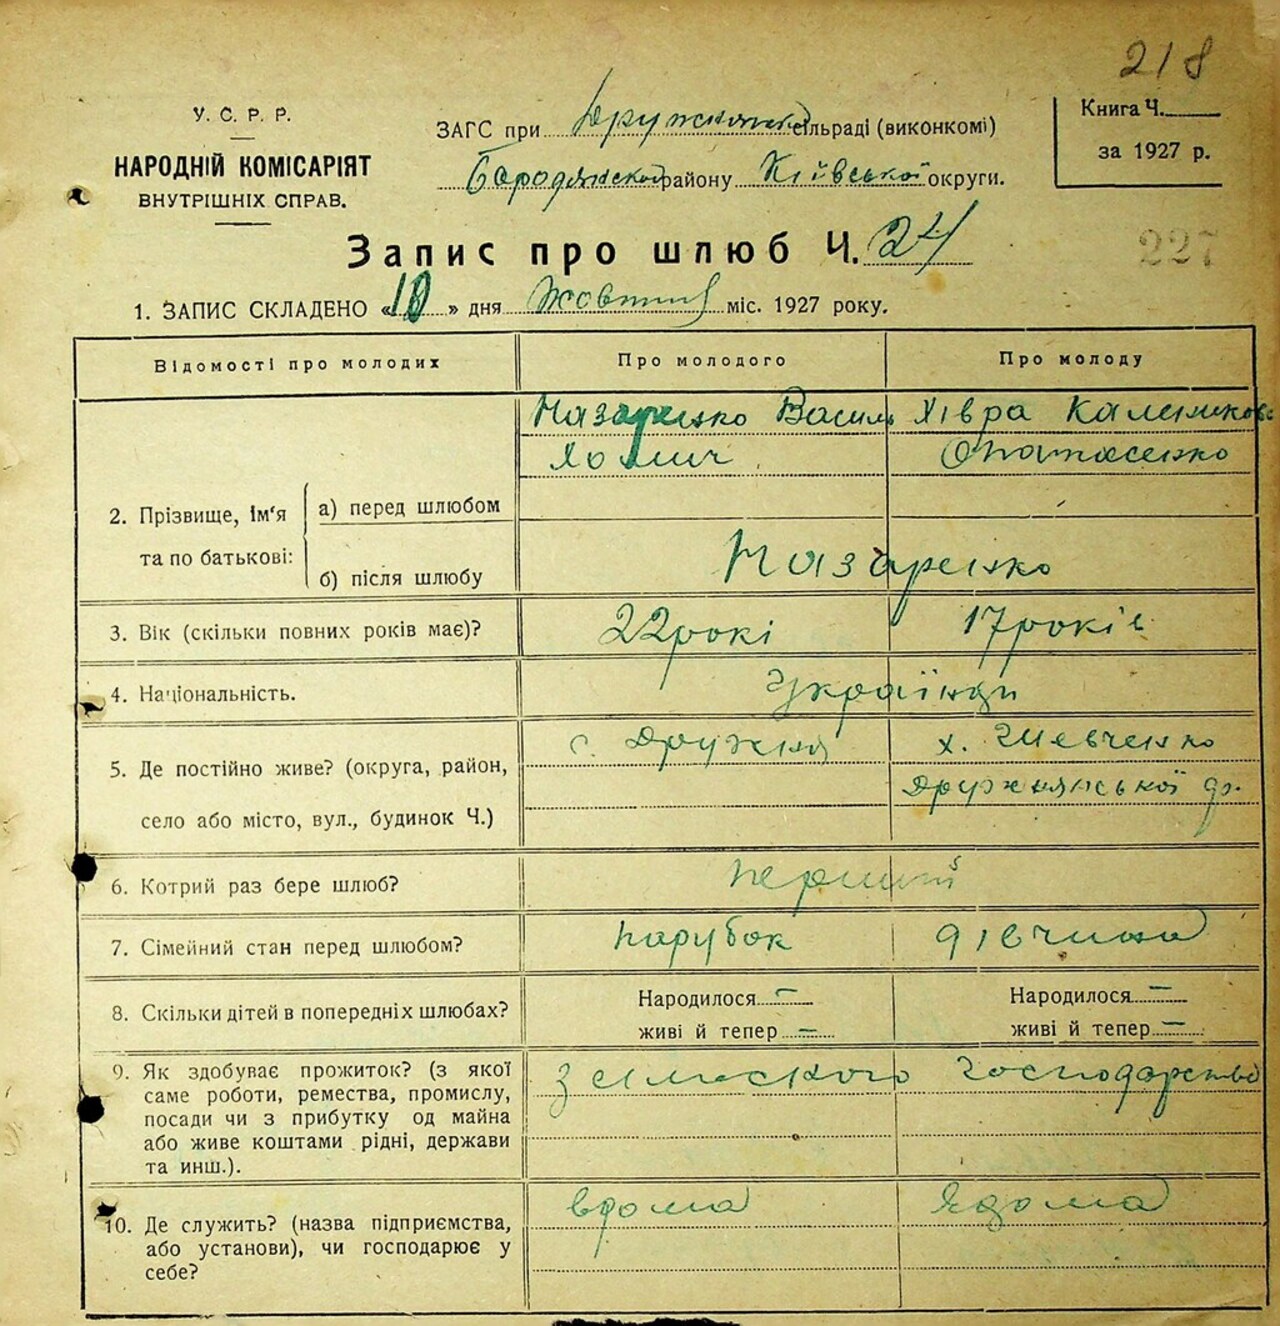 218
У. С. Р. Р.
НАРОДНІЙ КОМІСАРІЯТ
ВНУТРІШНІХ СПРАВ.
ЗАГС при Дружнянській сільраді (виконкомі)
Бородянського району Київської округи.
Книга Ч.
за 1927 р.
Запис про шлюб Ч. 24
227
1. ЗАПИС СКЛАДЕНО «10» дня Жовтня міс. 1927 року.
Відомості про молодих Про молодого Про молоду
2. Прізвище, ім'я та по батькові: а) перед шлюбом
Назаренко Василь Хомич
Хівра Калениковна Опанасенко
б) після шлюбу Назаренко
3. Вік (скільки повних років має)? 22 рокі 17 років
4. Національність. Українци
5. Де постійно живе? (округа, район,
село або місто, вул., будинок Ч.)
с. Дружня
х. Шевченко
Дружнянської
6. Котрий раз бере шлюб? перший
7. Сімейний стан перед шлюбом? парубок дівчина
8. Скільки дітей в попередніх шлюбах? Народилося — Народилося —
живі й тепер — живі й тепер —
9. Як здобуває прожиток? (з якої
саме роботи, ремества, промислу,
посади чи з прибутку од майна
або живе коштами рідні, держави
та инш.).
з сільского господарства
10. Де служить? (назва підприємства,
або установи), чи господарює у
себе?
вдома вдома